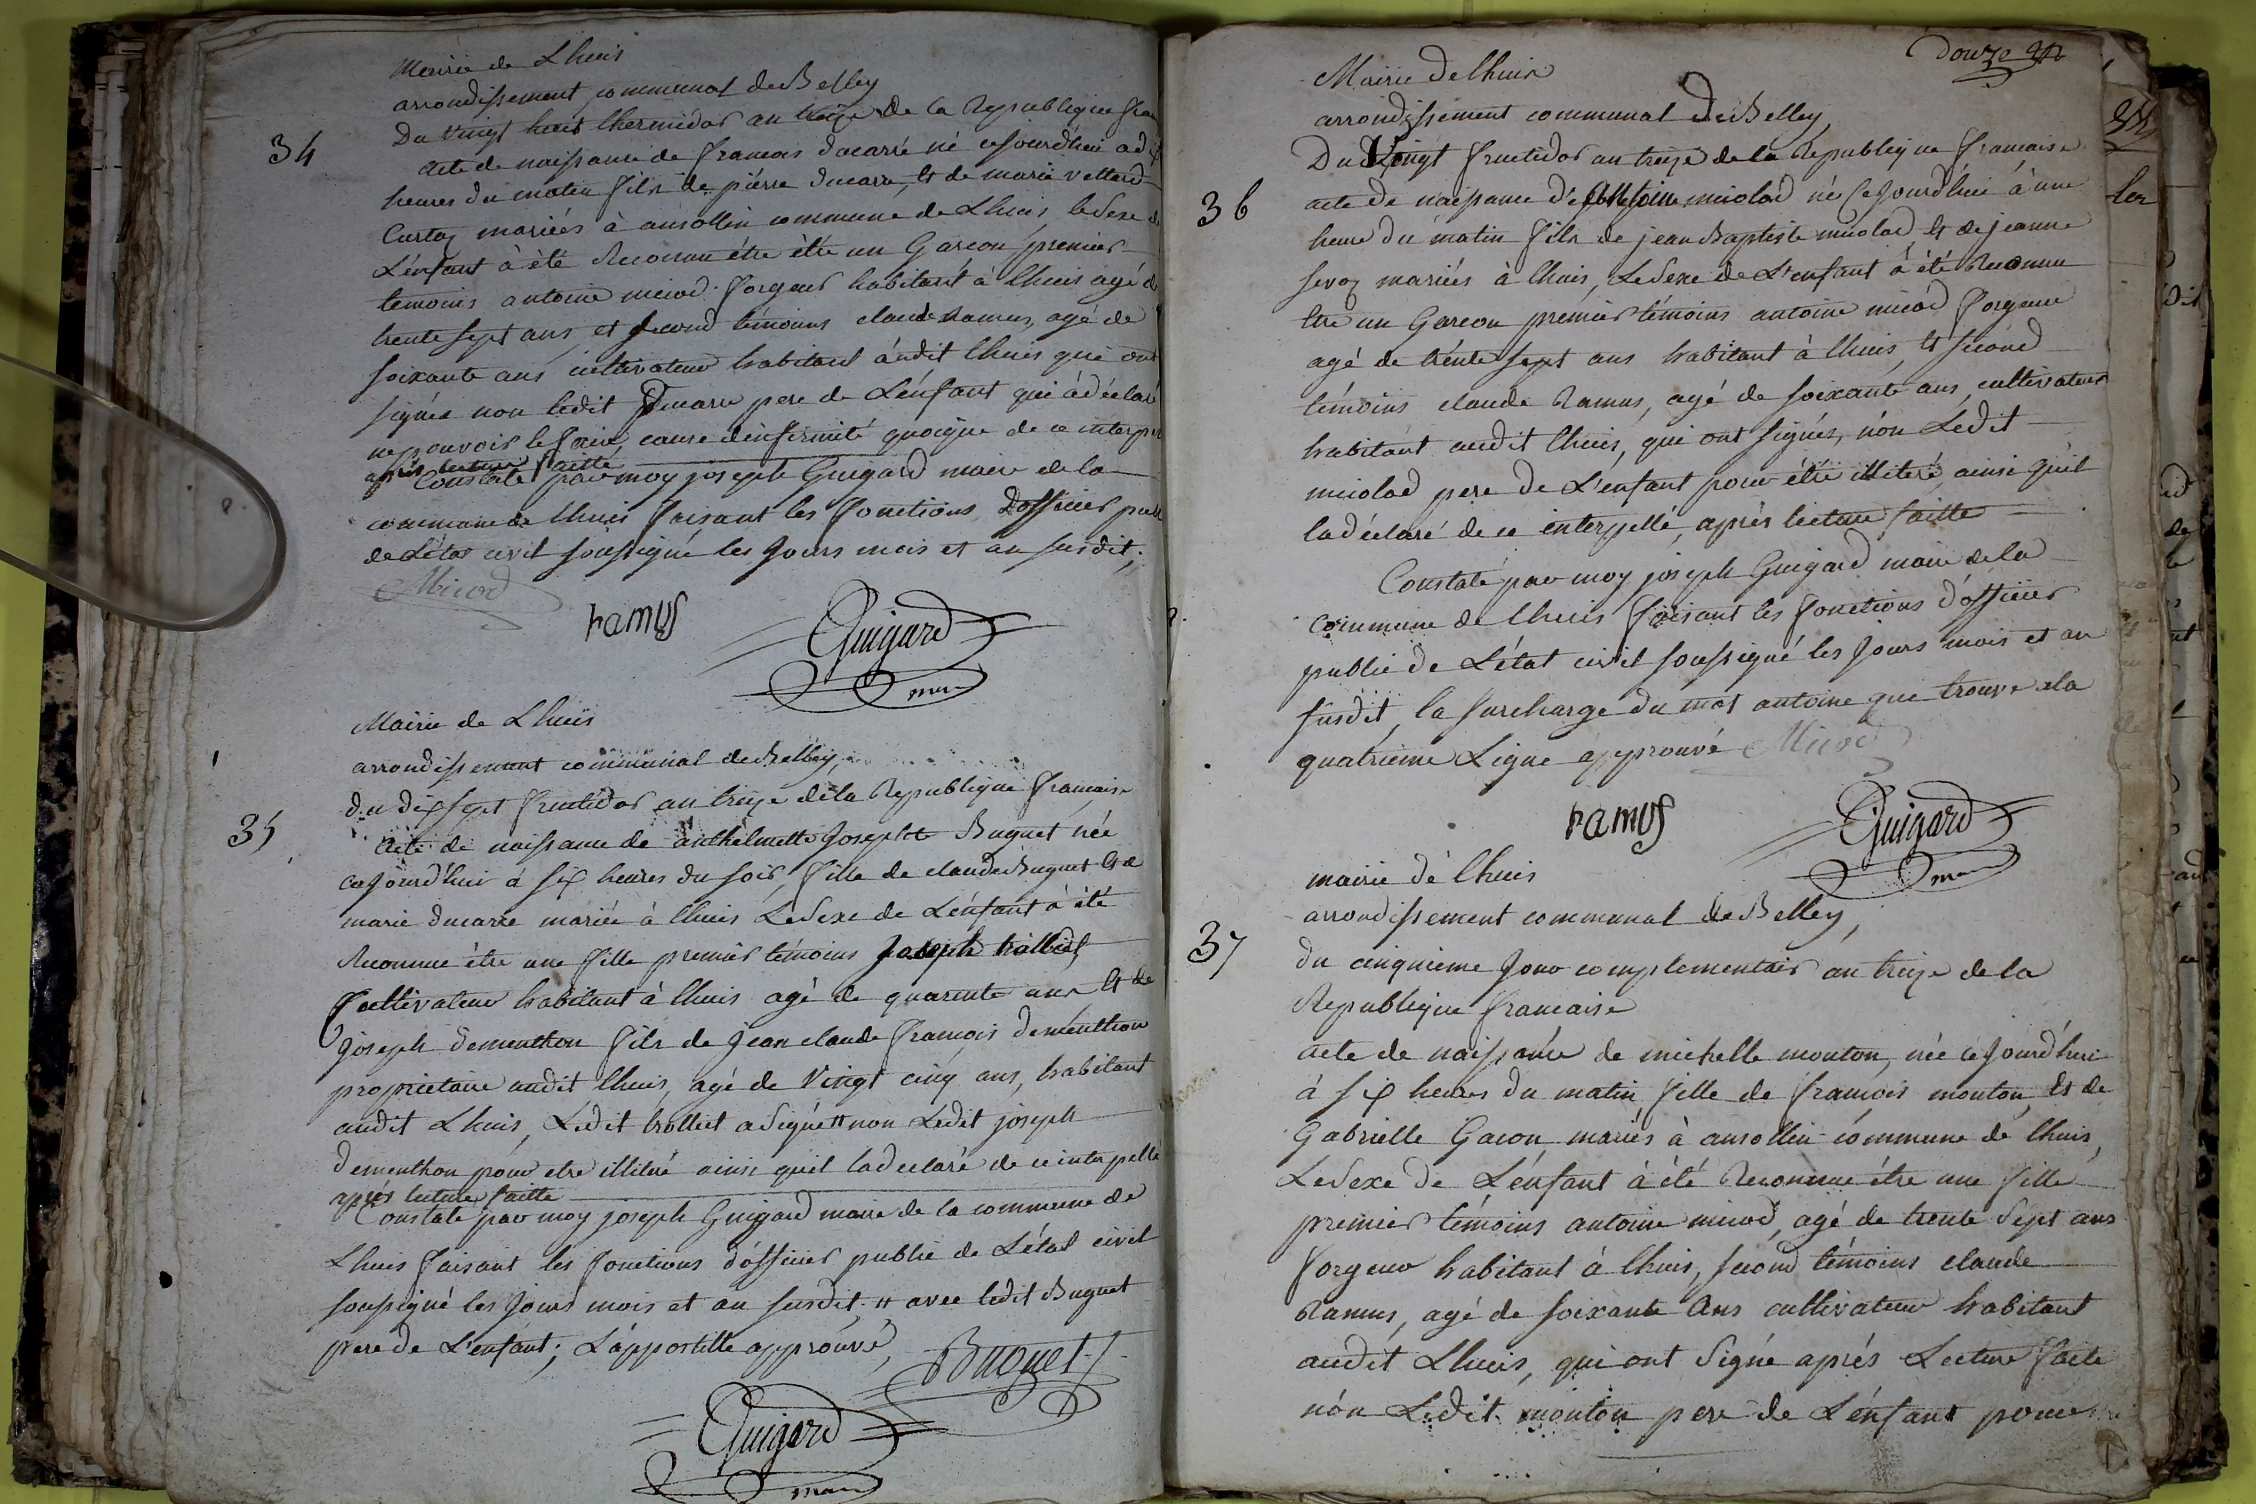 Mairie de Lhuis
arrondissement communal de Belley
34
Du vingt huit thermidor an treize de la Republique fran
acte de naissance de francois ducarré né cejourdhui a dix
heures du matin fils de pierre ducarre, et de marie vettard
Curtoz mariés à ansollin commune de Lhuis, le Sexe de
L'enfant à été Reconnu étre été un Garcon premier
temoins antoine micod forgeur habitant à lhuis agé de
trente sept ans, et second témoins claude Ramus, agé de
soixante ans cultivateur habitant audit lhuis qui ont
signés non ledit Ducarre pere de L'enfant qui à déclaré
ne pouvoir le faire, cause d'infirmité quoique de ce interpel
après lecture faitte
Constaté par moy joseph Guigard maire de la
commune de lhuis faisant les fonctions Dofficier publi
de L'état civil soussigné les Jours mois et an susdit;
Micod
ramus
Guigard
maire
Mairie de Lhuis
arrondissement communal de Belley,
35
du dix sept fructidor an treize dela Republique francaise
acte de naissance de anthelmette Josephte Buguet née
cejourd'hui à six heures du soir, fille de claude Buguet et de
marie ducarre mariée à lhuis Le Sexe de L'enfant à été
Reconnue étre une fille premier témoins Joseph trolliet
cultivateur habitant à lhuis agé de quarente ans et de
joseph dementhon fils de jean claude francois dementhon
proprietaire audit lhuis, agé de Vingt cinq ans, habitant
audit Lhuis, Ledit trolliet a Signé # non Ledit joseph
dementhon pour etre illitré ainsi quil la declaré de ce interpellé
après lecture faitte
Constaté par moy joseph Guigard maire de la commune de
Lhuis faisant les fonctions d'officier public de L'état civil
soussigné les Jours mois et an susdit. # avec ledit Buguet
pere de L'enfant; L'appostille approuvé,
Buguet
Guigard
maire
Douze
Mairie de lhuis
arrondissement communal de Belley,
Du Vingt fructidor an treize de la Republique francaise
36
acte de naissance d'Antoine miolad né cejourd'hui à une
heure du matin fils de jean Baptiste miolad, et de jeanne
sevoz mariés à lhuis, Le Sexe de L'enfant à été Reconnu
etre un Garcon premier témoins antoine micod forgeur
agé de trente sept ans habitant à lhuis, et second
témoins claude Ramus, agé de soixante ans, cultivateur
habitant audit lhuis, qui ont signés, nón Ledit
miolad pere de L'enfant pour étre illiteré, ainsi quil
la déclaré de ce interpellé, après lecture faitte
Constaté par moy joseph Guigard maire de la
commune de lhuis faisant les fonctions d'officier
public de L'état civil soussigné les Jours mois et an
susdit, la surcharge du mot antoine que trouve a la
quatrieme Ligne approuvé Micod
ramus
Guigard
maire
mairie de lhuis
arrondissement communal de Belley,
37
du cinquieme Jour complementair an treize de la
Republique francaise
acte de naissance de michelle mouton, née cejourd'hui
à six heures du matin fille de francois mouton, et de
Gabrielle Gacon, mariés à ansollin commune de lhuis,
Le Sexe de L'enfant à été Reconnue étre une fille
premier témoins antoine micod, agé de trente Sept ans
forgeur habitant à lhuis, second témoins claude
Ramus, agé de soixante Ans cultivateur habitant
audit Lhuis, qui ont Signé après Lecture faite
nón Ledit mouton pere de L'enfant pour